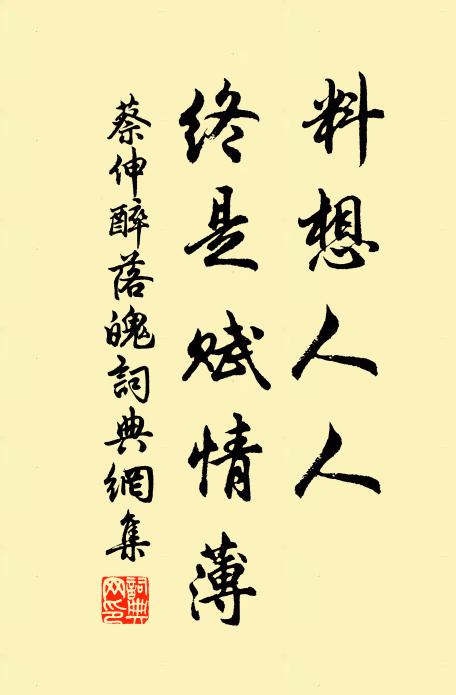 料想人人
終是賦情薄
蔡伸醉落魄詞典網集
詞典网印